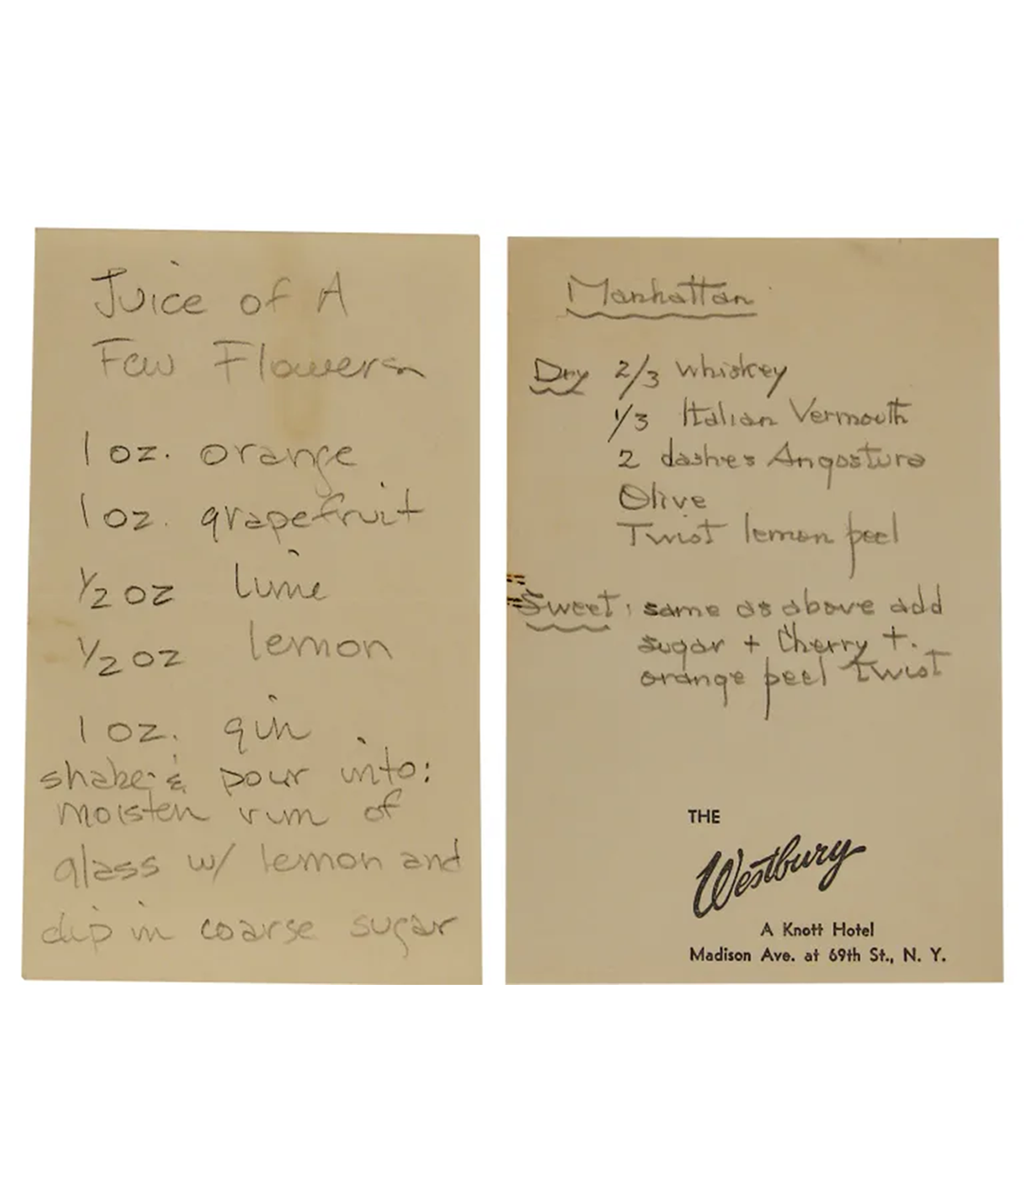 Juice of A
Few Flowers
1 oz. orange
1 oz. grapefruit
1/2 oz lime
1/2 oz lemon
1 oz. gin
shake & pour into:
moisten rim of
glass w/ lemon and
dip in coarse sugar
Manhattan
Dry 2/3 whiskey
1/3 Italian Vermouth
2 dashes Angostura
Olive
Twist lemon peel
Sweet: same as above add
sugar + Cherry +.
orange peel Twist
THE
Westbury
A Knott Hotel
Madison Ave. at 69th St., N. Y.